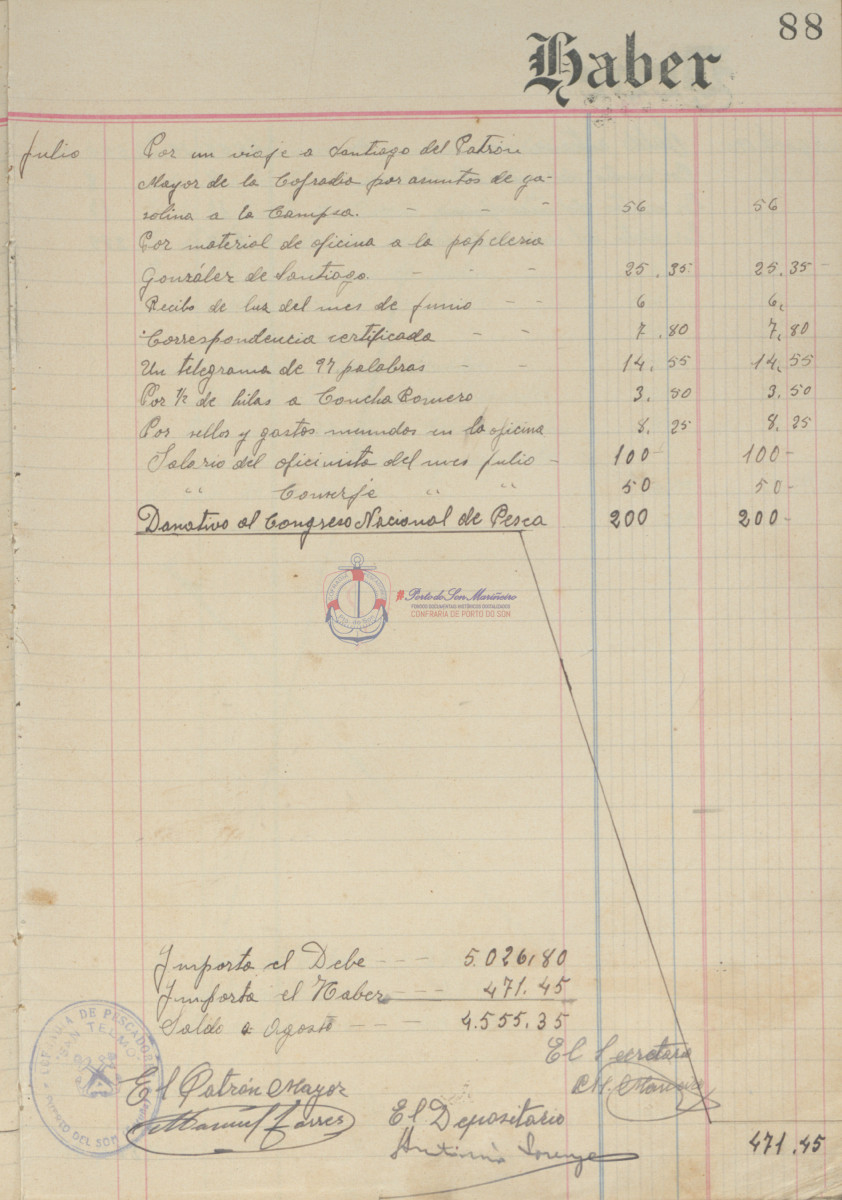 88
Haber
Julio Por un viaje a Santiago del Patrón
Mayor de la Cofradia por asuntos de ga-
solina a la Campsa. - - - 56 56
Por material de oficina a la papeleria
González de Santiago. - - - 25.35 25.35-
Recibo de luz del mes de Junio - - 6 6,
Correspondencia certificada - - 7.80 7,80
Un telegrama de 97 palabras - - 14.55 14.55
Por ½ de hilas a Concha Romero 3.50 3.50
Por sellos y gastos menudos en la oficina 8.25 8.25
Salario del oficinista del mes Julio - 100- 100-
" Conserje " " 50 50-
Donativo al Congreso Nacional de Pesca 200 200-
#Porto do Son Mariñeiro
FONDOS DOCUMENTAIS HISTÓRICOS DIXITALIZADOS
CONFRARÍA DE PORTO DO SON
Importa el Debe - - - 5.026,80
Importa el Haber - - - 471.45
Saldo a Agosto - - - 4.555.35
El Secretario
COFRADIA DE PESCADORES
"SAN TELMO"
PUERTO DEL SON
El Patrón Mayor
Manuel Torres
El Depositario
Antonio
471.45